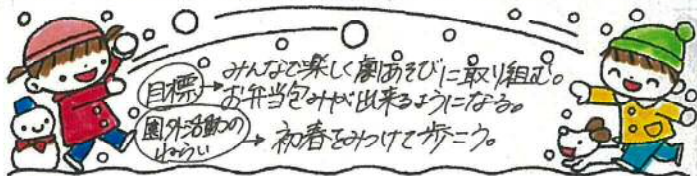 目標→みんなで楽しく劇あそびに取り組む。
お弁当包みが出来るようになる。
園外活動のねらい→初春をみつけて歩こう。